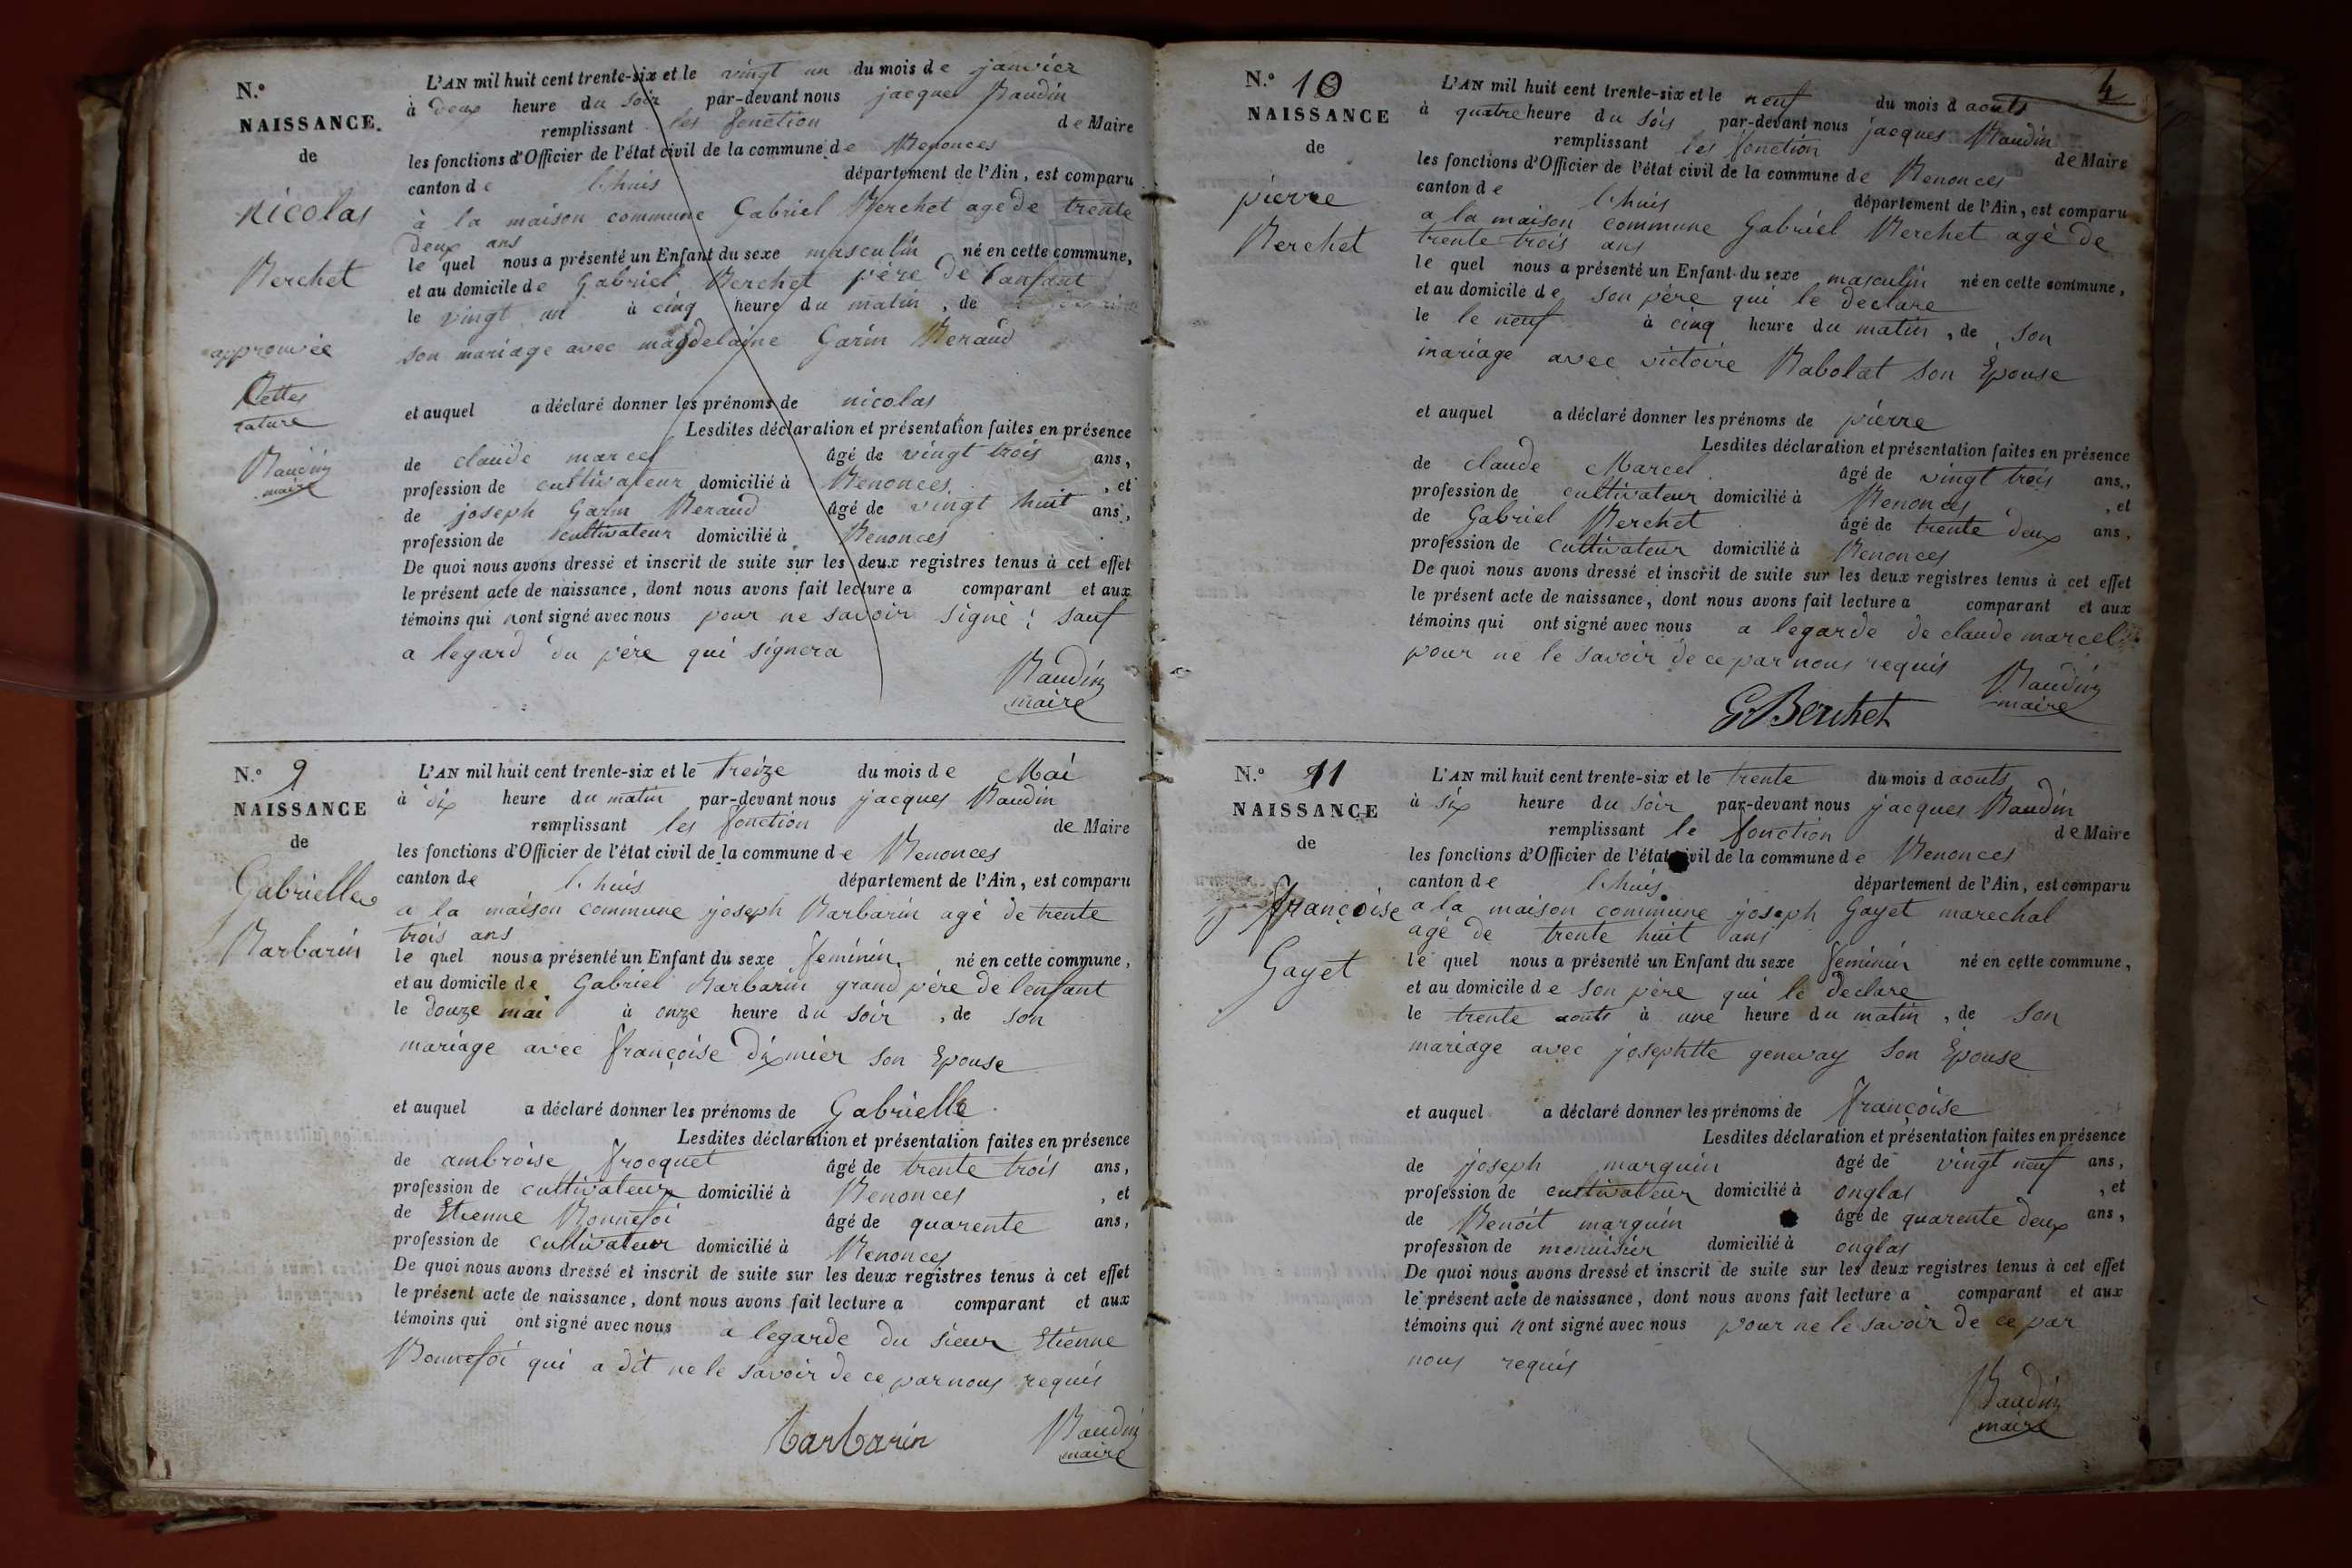 N.º
NAISSANCE.
de
nicolas
Berchet
approuvée
Cettes
rature
Baudin
maire
L'AN mil huit cent trente-six et le vingt un du mois de janvier
à deux heure du soir par-devant nous jacques Baudin
remplissant les fonction de Maire
les fonctions d'Officier de l'état civil de la commune de Benonces
canton de l'huis département de l'Ain, est comparu
à la maison commune Gabriel Berchet age de trente
deux ans
le quel nous a présenté un Enfant du sexe masculin né en cette commune,
et au domicile de Gabriel Berchet père de l'anfant
le vingt un à cinq heure du matin, de
son mariage avec magdelaine Garin Beraud
et auquel a déclaré donner les prénoms de nicolas
Lesdites déclaration et présentation faites en présence
de claude marcel âgé de vingt trois ans,
profession de cultivateur domicilié à Benonces, et
de joseph Garin Beraud âgé de vingt huit ans,
profession de cultivateur domicilié à Benonces
De quoi nous avons dressé et inscrit de suite sur les deux registres tenus à cet effet
le présent acte de naissance, dont nous avons fait lecture a comparant et aux
témoins qui nont signé avec nous pour ne savoir signé; sauf
a legard du père qui signera
Baudin
maire
N.º 9
NAISSANCE
de
Gabrielle
Barbarin
L'AN mil huit cent trente-six et le treize du mois de Mai
à dix heure du matin par-devant nous jacques Baudin
remplissant les fonction de Maire
les fonctions d'Officier de l'état civil de la commune de Benonces
canton de l'huis département de l'Ain, est comparu
a la maison commune joseph Barbarin agé de trente
trois ans
le quel nous a présenté un Enfant du sexe feminin né en cette commune,
et au domicile de Gabriel Barbarin grand père de lenfant
le douze mai à onze heure du soir, de son
mariage avec françoise dixmier son Epouse
et auquel a déclaré donner les prénoms de Gabrielle
Lesdites déclaration et présentation faites en présence
de ambroise frocquet âgé de trente trois ans,
profession de cultivateur domicilié à Benonces, et
de Etienne Bonnefoi âgé de quarente ans,
profession de cultivateur domicilié à Benonces
De quoi nous avons dressé et inscrit de suite sur les deux registres tenus à cet effet
le présent acte de naissance, dont nous avons fait lecture a comparant et aux
témoins qui ont signé avec nous a legarde du sieur Etienne
Bonnefoi qui a dit ne le savoir de ce par nous requis
Barbarin
Baudin
maire
4
N.º 10
NAISSANCE
de
pierre
Berchet
L'AN mil huit cent trente-six et le neuf du mois d aouts
à quatre heure du soir par-devant nous jacques Baudin
remplissant les fonction de Maire
les fonctions d'Officier de l'état civil de la commune de Benonces
canton de l'huis département de l'Ain, est comparu
a la maison commune Gabriel Berchet agé de
trente trois ans
le quel nous a présenté un Enfant du sexe masculin né en cette commune,
et au domicile de son père qui le declare
le le neuf à cinq heure du matin, de son
mariage avec victoire Rabolat son Epouse
et auquel a déclaré donner les prénoms de pierre
Lesdites déclaration et présentation faites en présence
de claude Marcel âgé de vingt trois ans,
profession de cultivateur domicilié à Benonces, et
de Gabriel Berchet âgé de trente deux ans,
profession de cultivateur domicilié à Benonces
De quoi nous avons dressé et inscrit de suite sur les deux registres tenus à cet effet
le présent acte de naissance, dont nous avons fait lecture a comparant et aux
témoins qui ont signé avec nous a legarde de claude marcel
pour ne le savoir de ce par nous requis
Baudin
maire
G Berchet
N.º 11
NAISSANCE
de
françoise
Gayet
L'AN mil huit cent trente-six et le trente du mois d aouts
à six heure du soir par-devant nous jacques Baudin
remplissant le fonction de Maire
les fonctions d'Officier de l'état civil de la commune de Benonces
canton de l'huis département de l'Ain, est comparu
a la maison commune joseph Gayet marechal
agé de trente huit ans
le quel nous a présenté un Enfant du sexe feminin né en cette commune,
et au domicile de son père qui le declare
le trente aouts à une heure du matin, de son
mariage avec josephtte genevay son Epouse
et auquel a déclaré donner les prénoms de françoise
Lesdites déclaration et présentation faites en présence
de joseph marquin âgé de vingt neuf ans,
profession de cultivateur domicilié à onglas, et
de Benoit marquin âgé de quarente deux ans,
profession de menuisier domicilié à onglas
De quoi nous avons dressé et inscrit de suite sur les deux registres tenus à cet effet
le présent acte de naissance, dont nous avons fait lecture a comparant et aux
témoins qui nont signé avec nous pour ne le savoir de ce par
nous requis
Baudin
maire